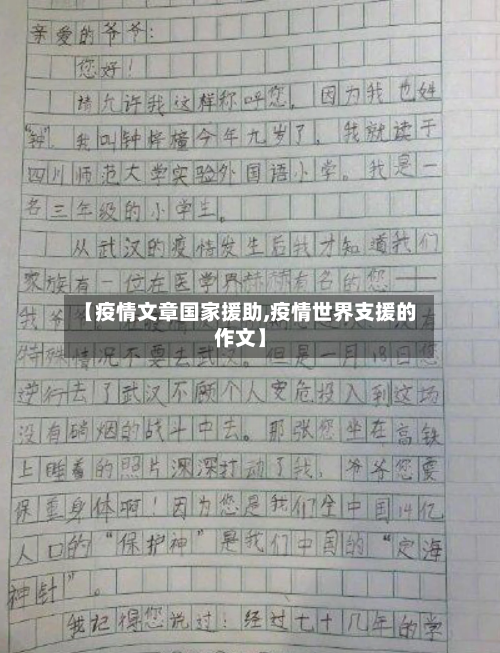 亲爱的爷爷：
您好！
请允许我这样称呼您，因为我也姓
“钟”，我叫钟梓橦今年九岁了，我就读于
四川师范大学实验外国语小学。我是一
名三年级的小学生。
从武汉的疫情发生后我才知道我们
家族有一位在医学界赫赫有名的您——
【疫情文章国家援助,疫情世界支援的
作文】
特殊情况不要去武汉。但是一月18日您
逆行去了武汉不顾个人安危投入到这场
没有硝烟的战斗中去。那张您坐在高铁
上睡着的照片深深打动了我，爷爷您要
保重身体啊！因为您是我们全中国14亿
人口的“保护神”是我们中国的“定海
神针”。
我记得您说过：经过七十几年的学